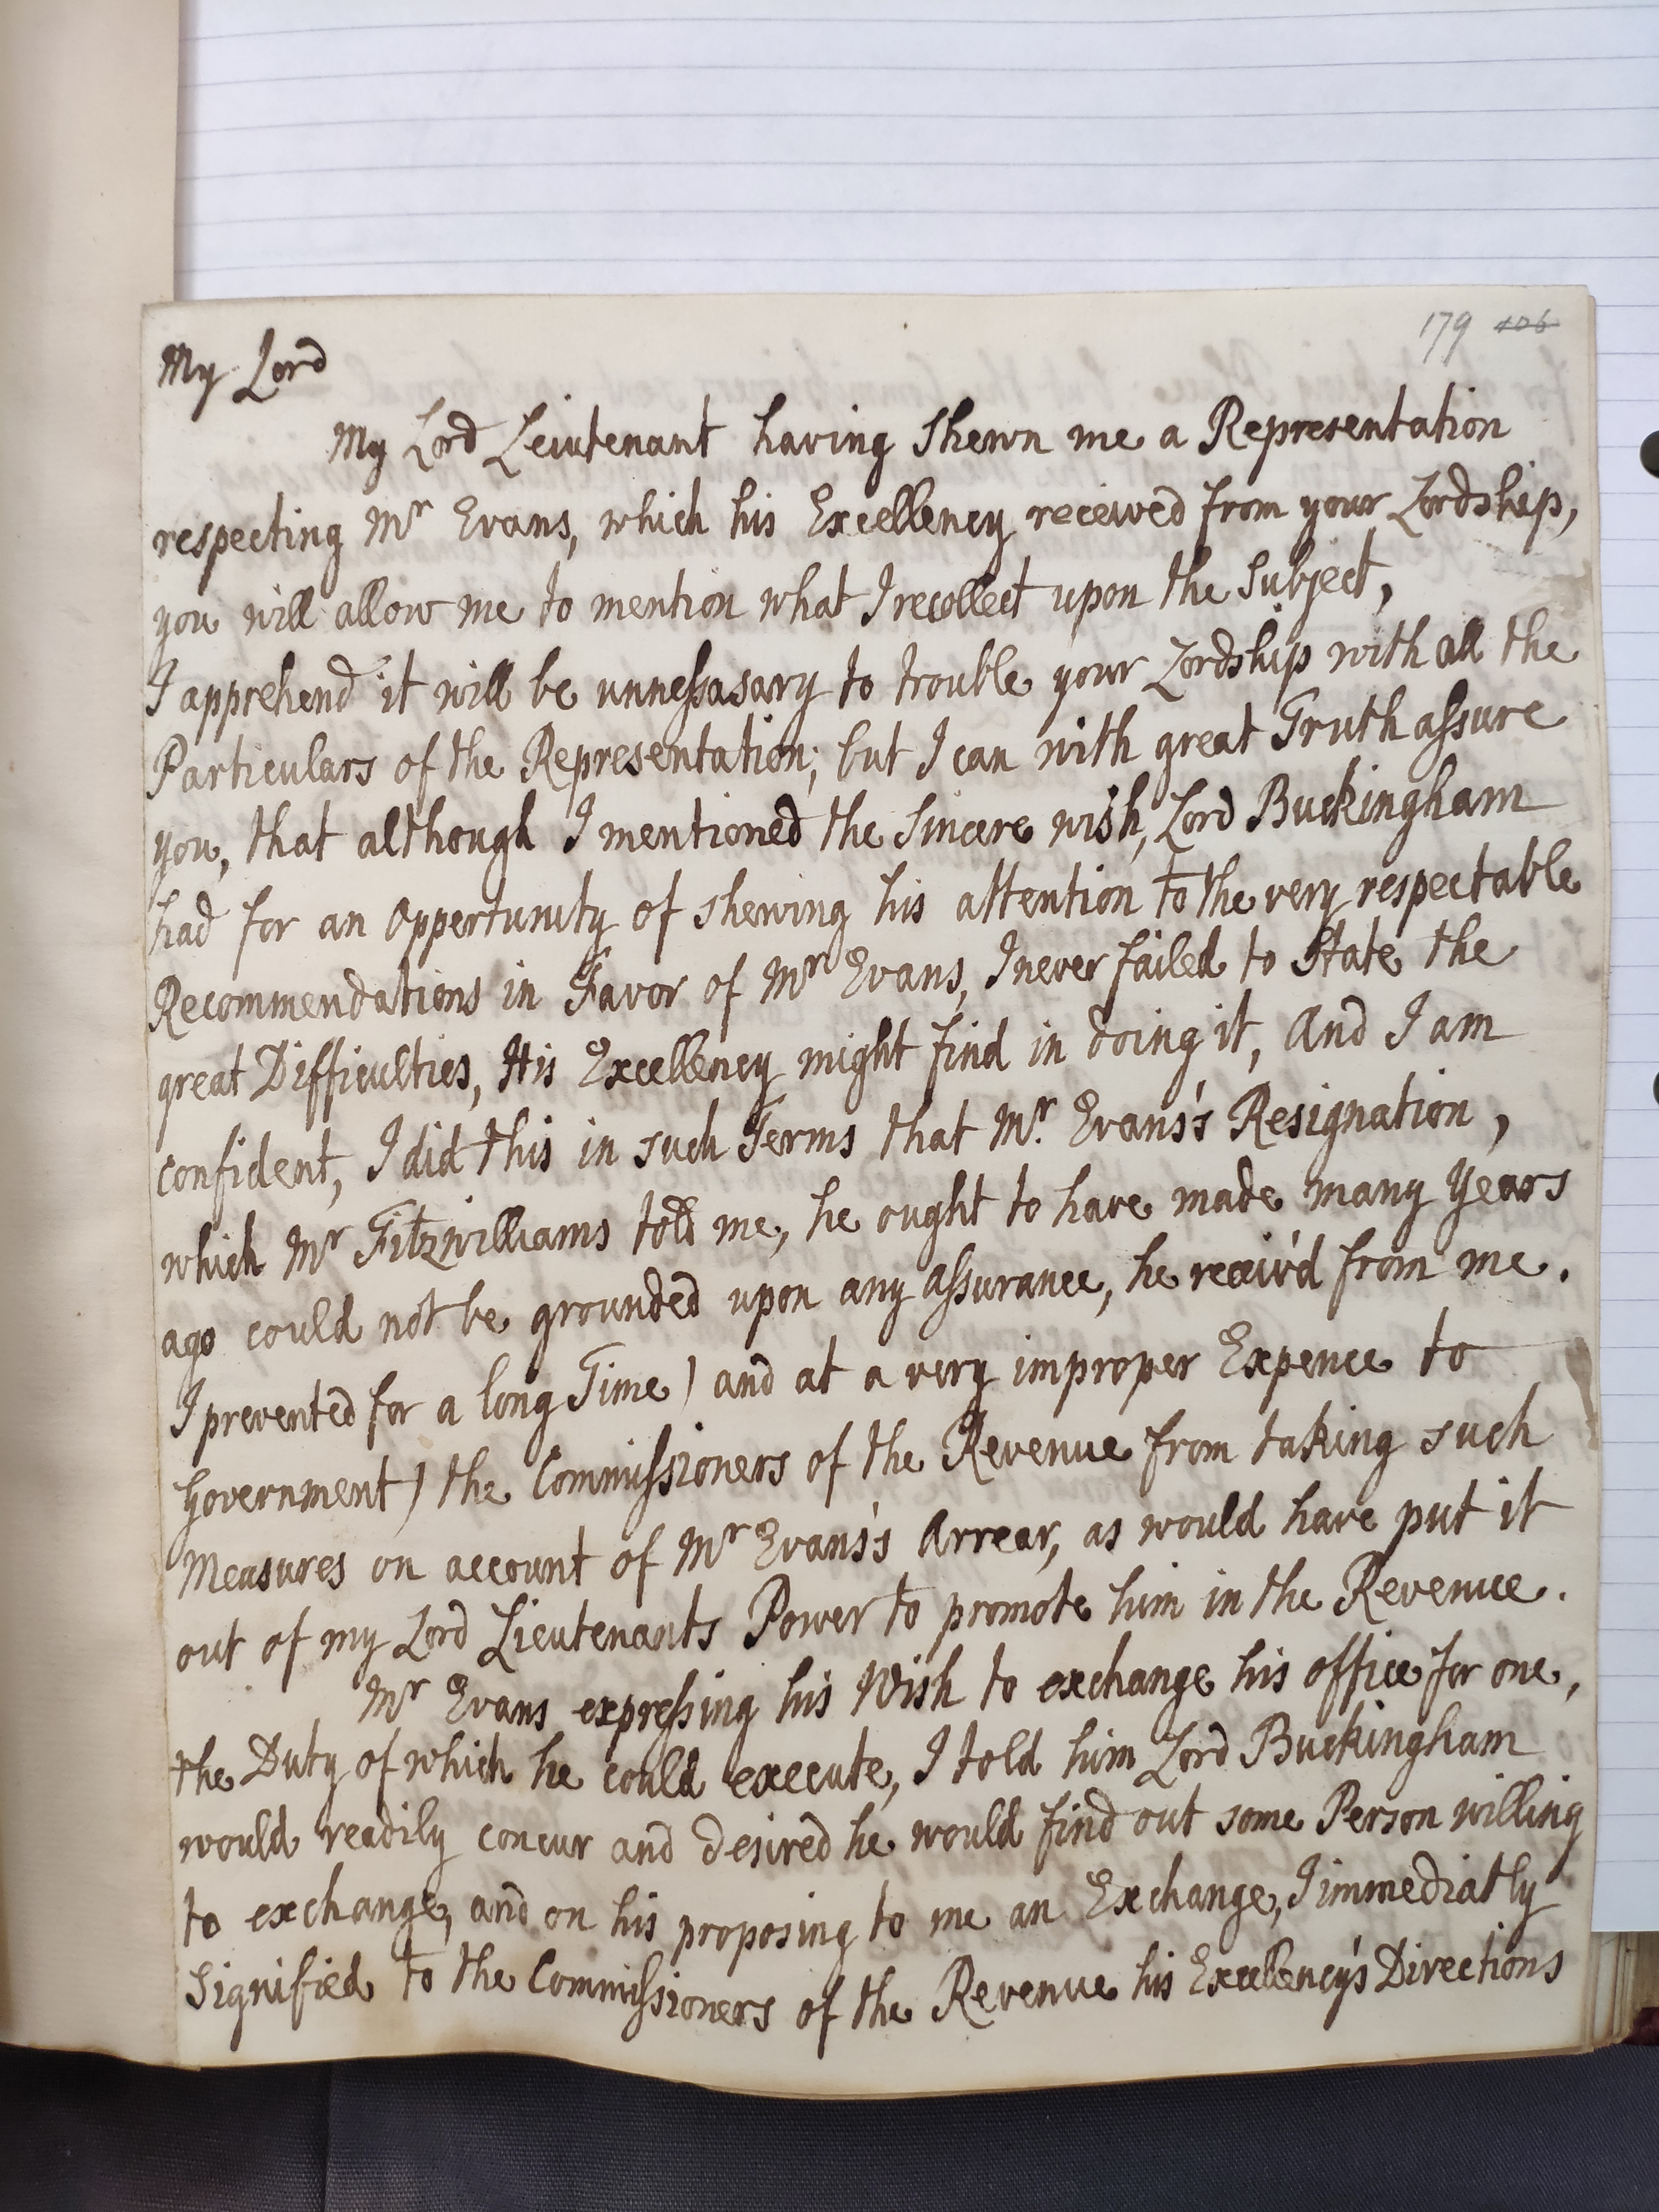 179 106
My Lord
My Lord Leiutenant having Shewn me a Representation
respecting Mr Evans, which his Excellency received from your Lordship,
you will allow me to mention what I recollect upon the Subject,
I apprehend it will be unnessasary to trouble your Lordship with all the
Particulars of the Representation; but I can with great Truth assure
you, that although I mentioned the Sincere wish, Lord Buckingham
had for an Oppertunity of shewing his attention to the very respectable
Recommendations in Favor of Mr Evans, I never failed to State the
great Difficulties, His Excellency might find in doing it, And I am
confident, I did this in such Terms that Mr. Evans's Resignation,
which Mr Fitzwilliams told me, he ought to have made many Years
ago could not be grounded upon any assurance, he receiv'd from me.
I prevented for a long Time) and at a very improper Expence to
Government) the Commissioners of the Revenue from taking such
Measures on account of Mr Evans's Arrear, as would have put it
out of my Lord Lieutenants Power to promote him in the Revenue.
Mr Evans expressing his Wish to exchange his office for one,
the Duty of which he could execute, I told him Lord Buckingham
would readily concur and desired he would find out some Person willing
to exchange, and on his proposing to me an Exchange, I immediatly
Signified to the Commissioners of the Revenue his Excellency's Directions